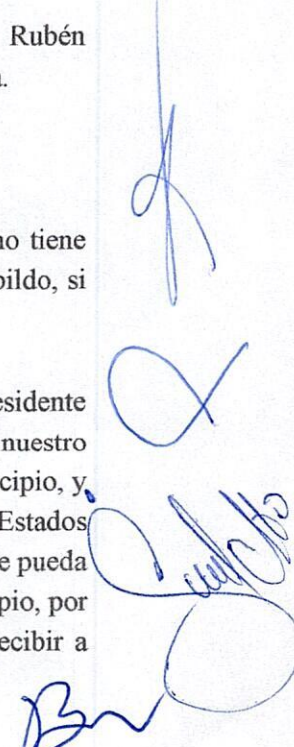 Rubén
no tiene
bildo, si
esidente
nuestro
cipio, y
Estados
e pueda
pio, por
ecibir a